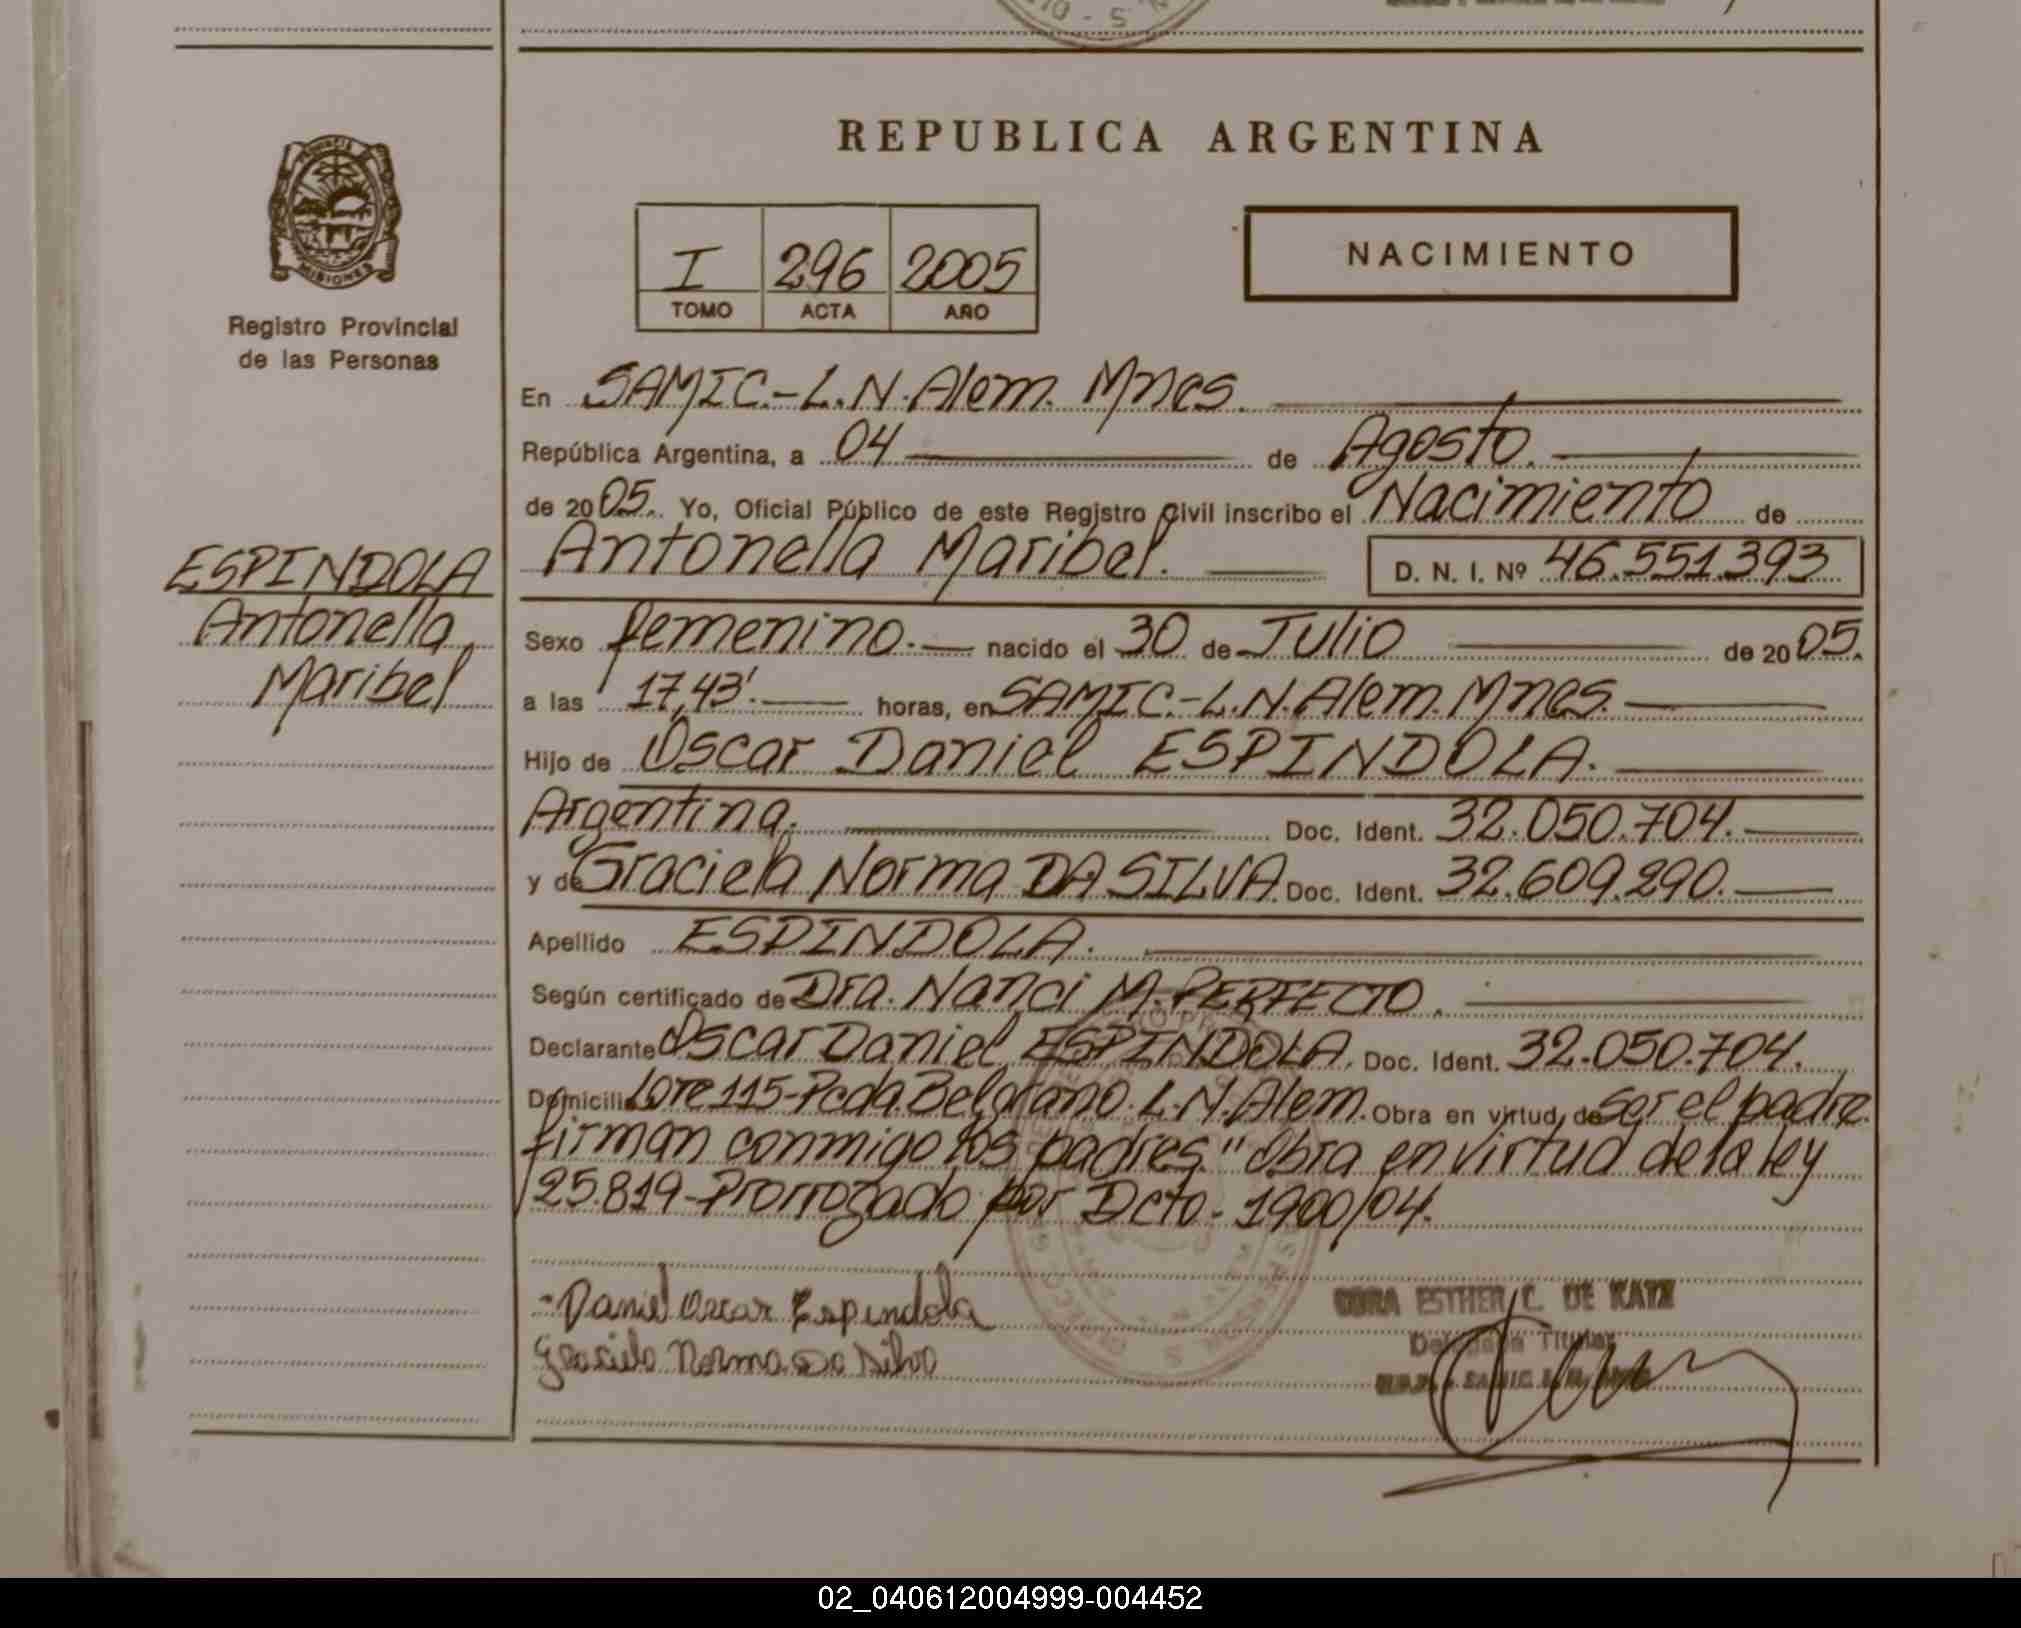 REPUBLICA ARGENTINA
PROVINCIA DE
MISIONES
Registro Provincial
de las Personas
I 296 2005
TOMO ACTA AÑO
NACIMIENTO
ESPINDOLA
Antonella
Maribel
En SAMIC.-L.N.Alem. Mnes.
República Argentina, a 04 de Agosto.
de 2005. Yo, Oficial Público de este Registro Civil inscribo el Nacimiento de
Antonella Maribel. D. N. I. Nº 46.551.393
Sexo femenino. nacido el 30 de Julio de 2005.
a las 17,43'. horas, en SAMIC.-L.N.Alem. Mnes.
Hijo de Oscar Daniel ESPINDOLA.
Argentina. Doc. Ident. 32.050.704.
y de Graciela Norma DA SILVA. Doc. Ident. 32.609.290.
Apellido ESPINDOLA.
Según certificado de Dra. Nanci M. PERFECTO.
Declarante Oscar Daniel ESPINDOLA. Doc. Ident. 32.050.704.
Domicilio Lote 115-Pcda. Belgrano. L.N.Alem. Obra en virtud de ser el padre.
firman conmigo los padres." Obra en virtud de la ley
25.819-Prorrogado por Dcto.- 1900/04.
Daniel Oscar Espindola
Graciela Norma Da Silva
ESTHER C. DE KATZ
Delegada Titular
02_040612004999-004452